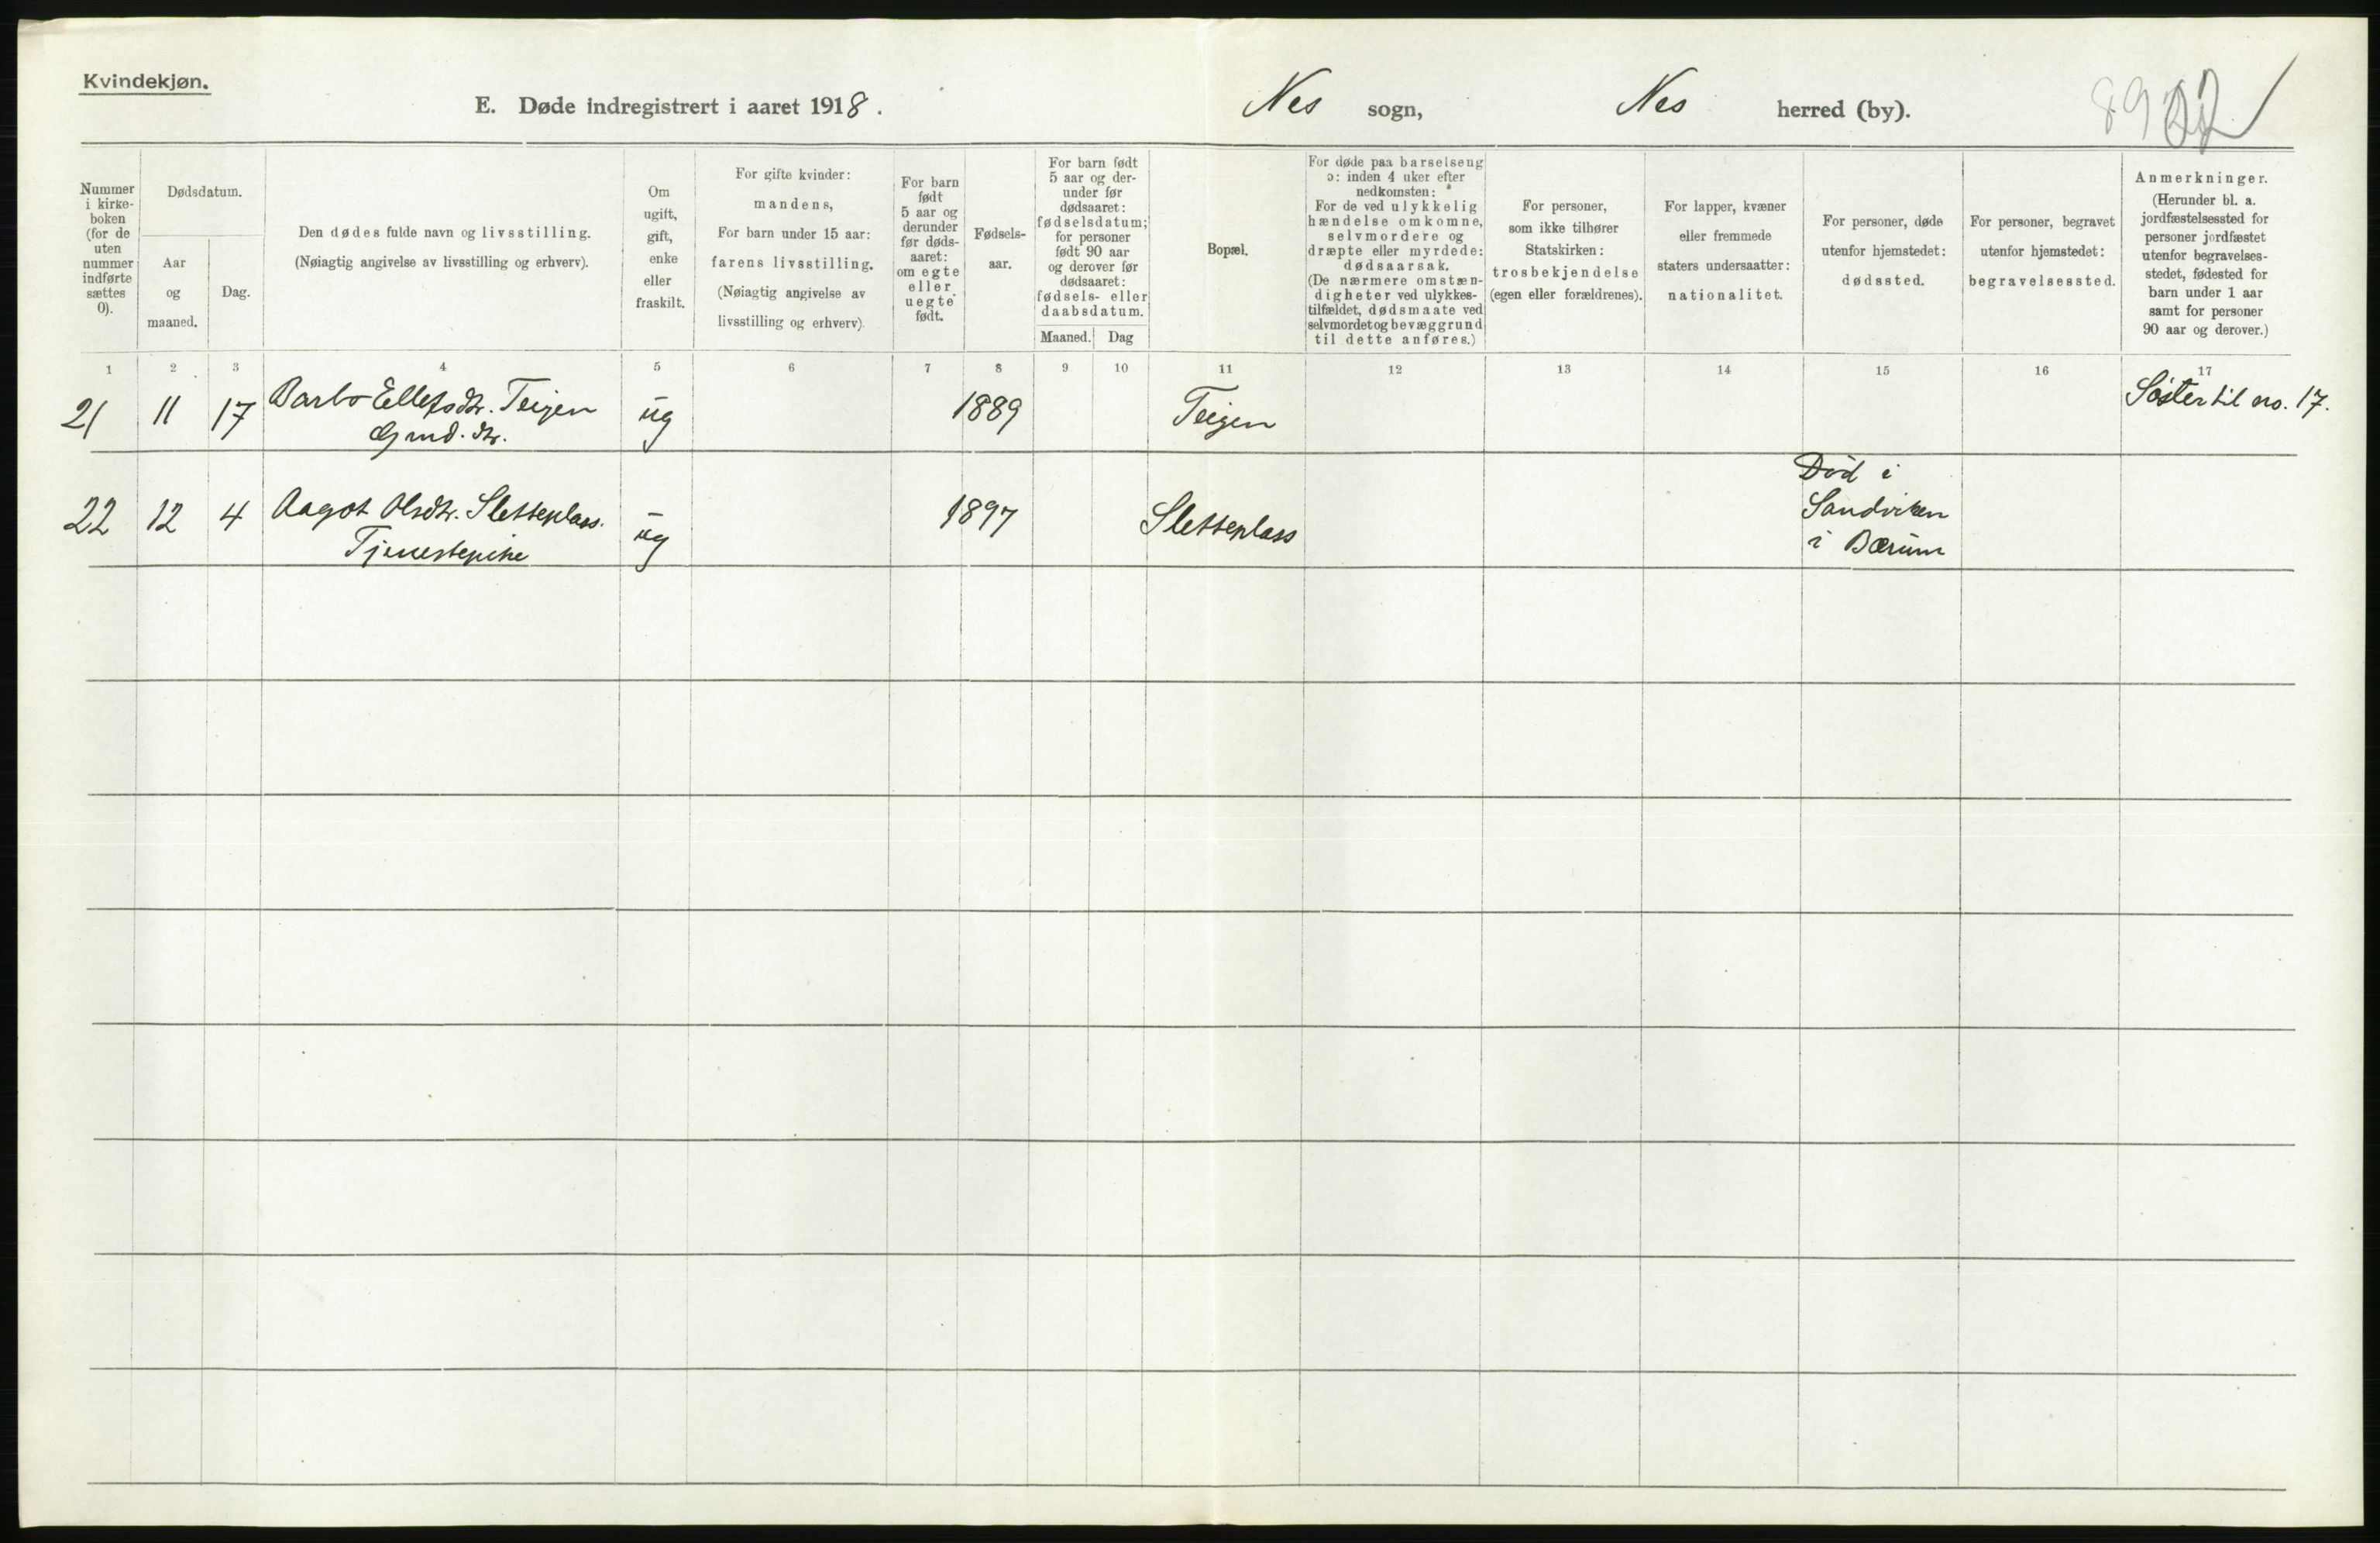 Kvindekjøn.
E. Døde indregistrert i aaret 1918.
Nes sogn, Nes herred (by).
Nummer
i kirke-
boken
(for de
uten
nummer
indførte
sættes
0).
Dødsdatum.
Aar
og
maaned.
Dag.
Den dødes fulde navn og livsstilling.
(Nøiagtig angivelse av livsstilling og erhverv).
Om
ugift,
gift,
enke
eller
fraskilt.
For gifte kvinder:
mandens,
For barn under 15 aar:
farens livsstilling.
(Nøiagtig angivelse av
livsstilling og erhverv).
For barn
født
5 aar og
derunder
før døds-
aaret:
om egte
eller
uegte
født.
Fødsels-
aar.
For barn født
5 aar og der-
under før
dødsaaret:
fødselsdatum;
for personer
født 90 aar
og derover før
dødsaaret:
fødsels- eller
daabsdatum.
Maaned. Dag
Bopæl.
For døde paa barselseng
ɔ: inden 4 uker efter
nedkomsten:
For de ved ulykkelig
hændelse omkomne,
selvmordere og
dræpte eller myrdede:
dødsaarsak.
(De nærmere omstæn-
digheter ved ulykkes-
tilfældet, dødsmaate ved
selvmordet og bevæggrund
til dette anføres.)
For personer,
som ikke tilhører
Statskirken:
trosbekjendelse
(egen eller forældrenes).
For lapper, kvæner
eller fremmede
staters undersaatter:
nationalitet.
For personer, døde
utenfor hjemstedet:
dødssted.
For personer, begravet
utenfor hjemstedet:
begravelsessted.
Anmerkninger.
(Herunder bl. a.
jordfæstelsessted for
personer jordfæstet
utenfor begravelses-
stedet, fødested for
barn under 1 aar
samt for personer
90 aar og derover.)
1 2 3 4 5 6 7 8 9 10 11 12 13 14 15 16 17
21 11 17 Barbo Ellefsdtr. Teigen ug 1889 Teigen Søster til no. 17.
Gmd. dtr.
22 12 4 Aagot Olsdtr. Sletteplass. ug 1897 Sletteplass Død i
Sandviken
i Bærum
Tjenestepike